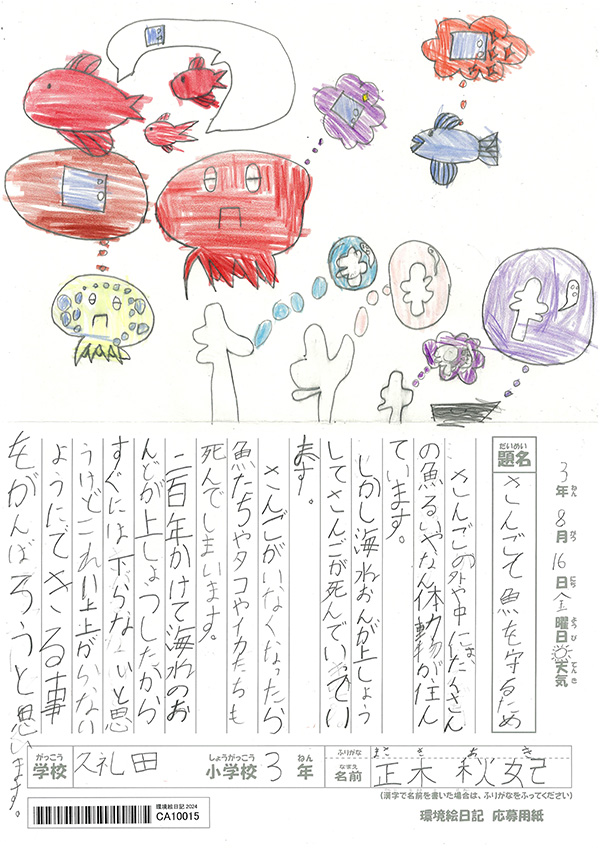 3年8月16日金曜日天気
ねん がつ にち ようび てんき
だいめい
題名
さんごて魚を守るため
さんごの外や中には、たくさん
の魚るいやなん体動物が住ん
でいます。
しかし海水おんが上しょう
してさんごが死んでいってい
ます。
さんごがいなくなったら
魚たちやタコやイカたちも
死んでしまいます。
二百年かけて海水のお
んどが上しょうしたから
すぐには下らないと思
うけどこれい上上がらない
ようにできる事
をがんばろうと思います。
がっこう
学校
久礼田
しょうがっこう
小学校
3
ねん
年
ふりがな
まさ き あ き
なまえ
名前
正木 秋妃
(漢字で名前を書いた場合は、ふりがなをふってください)
環境絵日記 2024
CA10015
環境絵日記 応募用紙